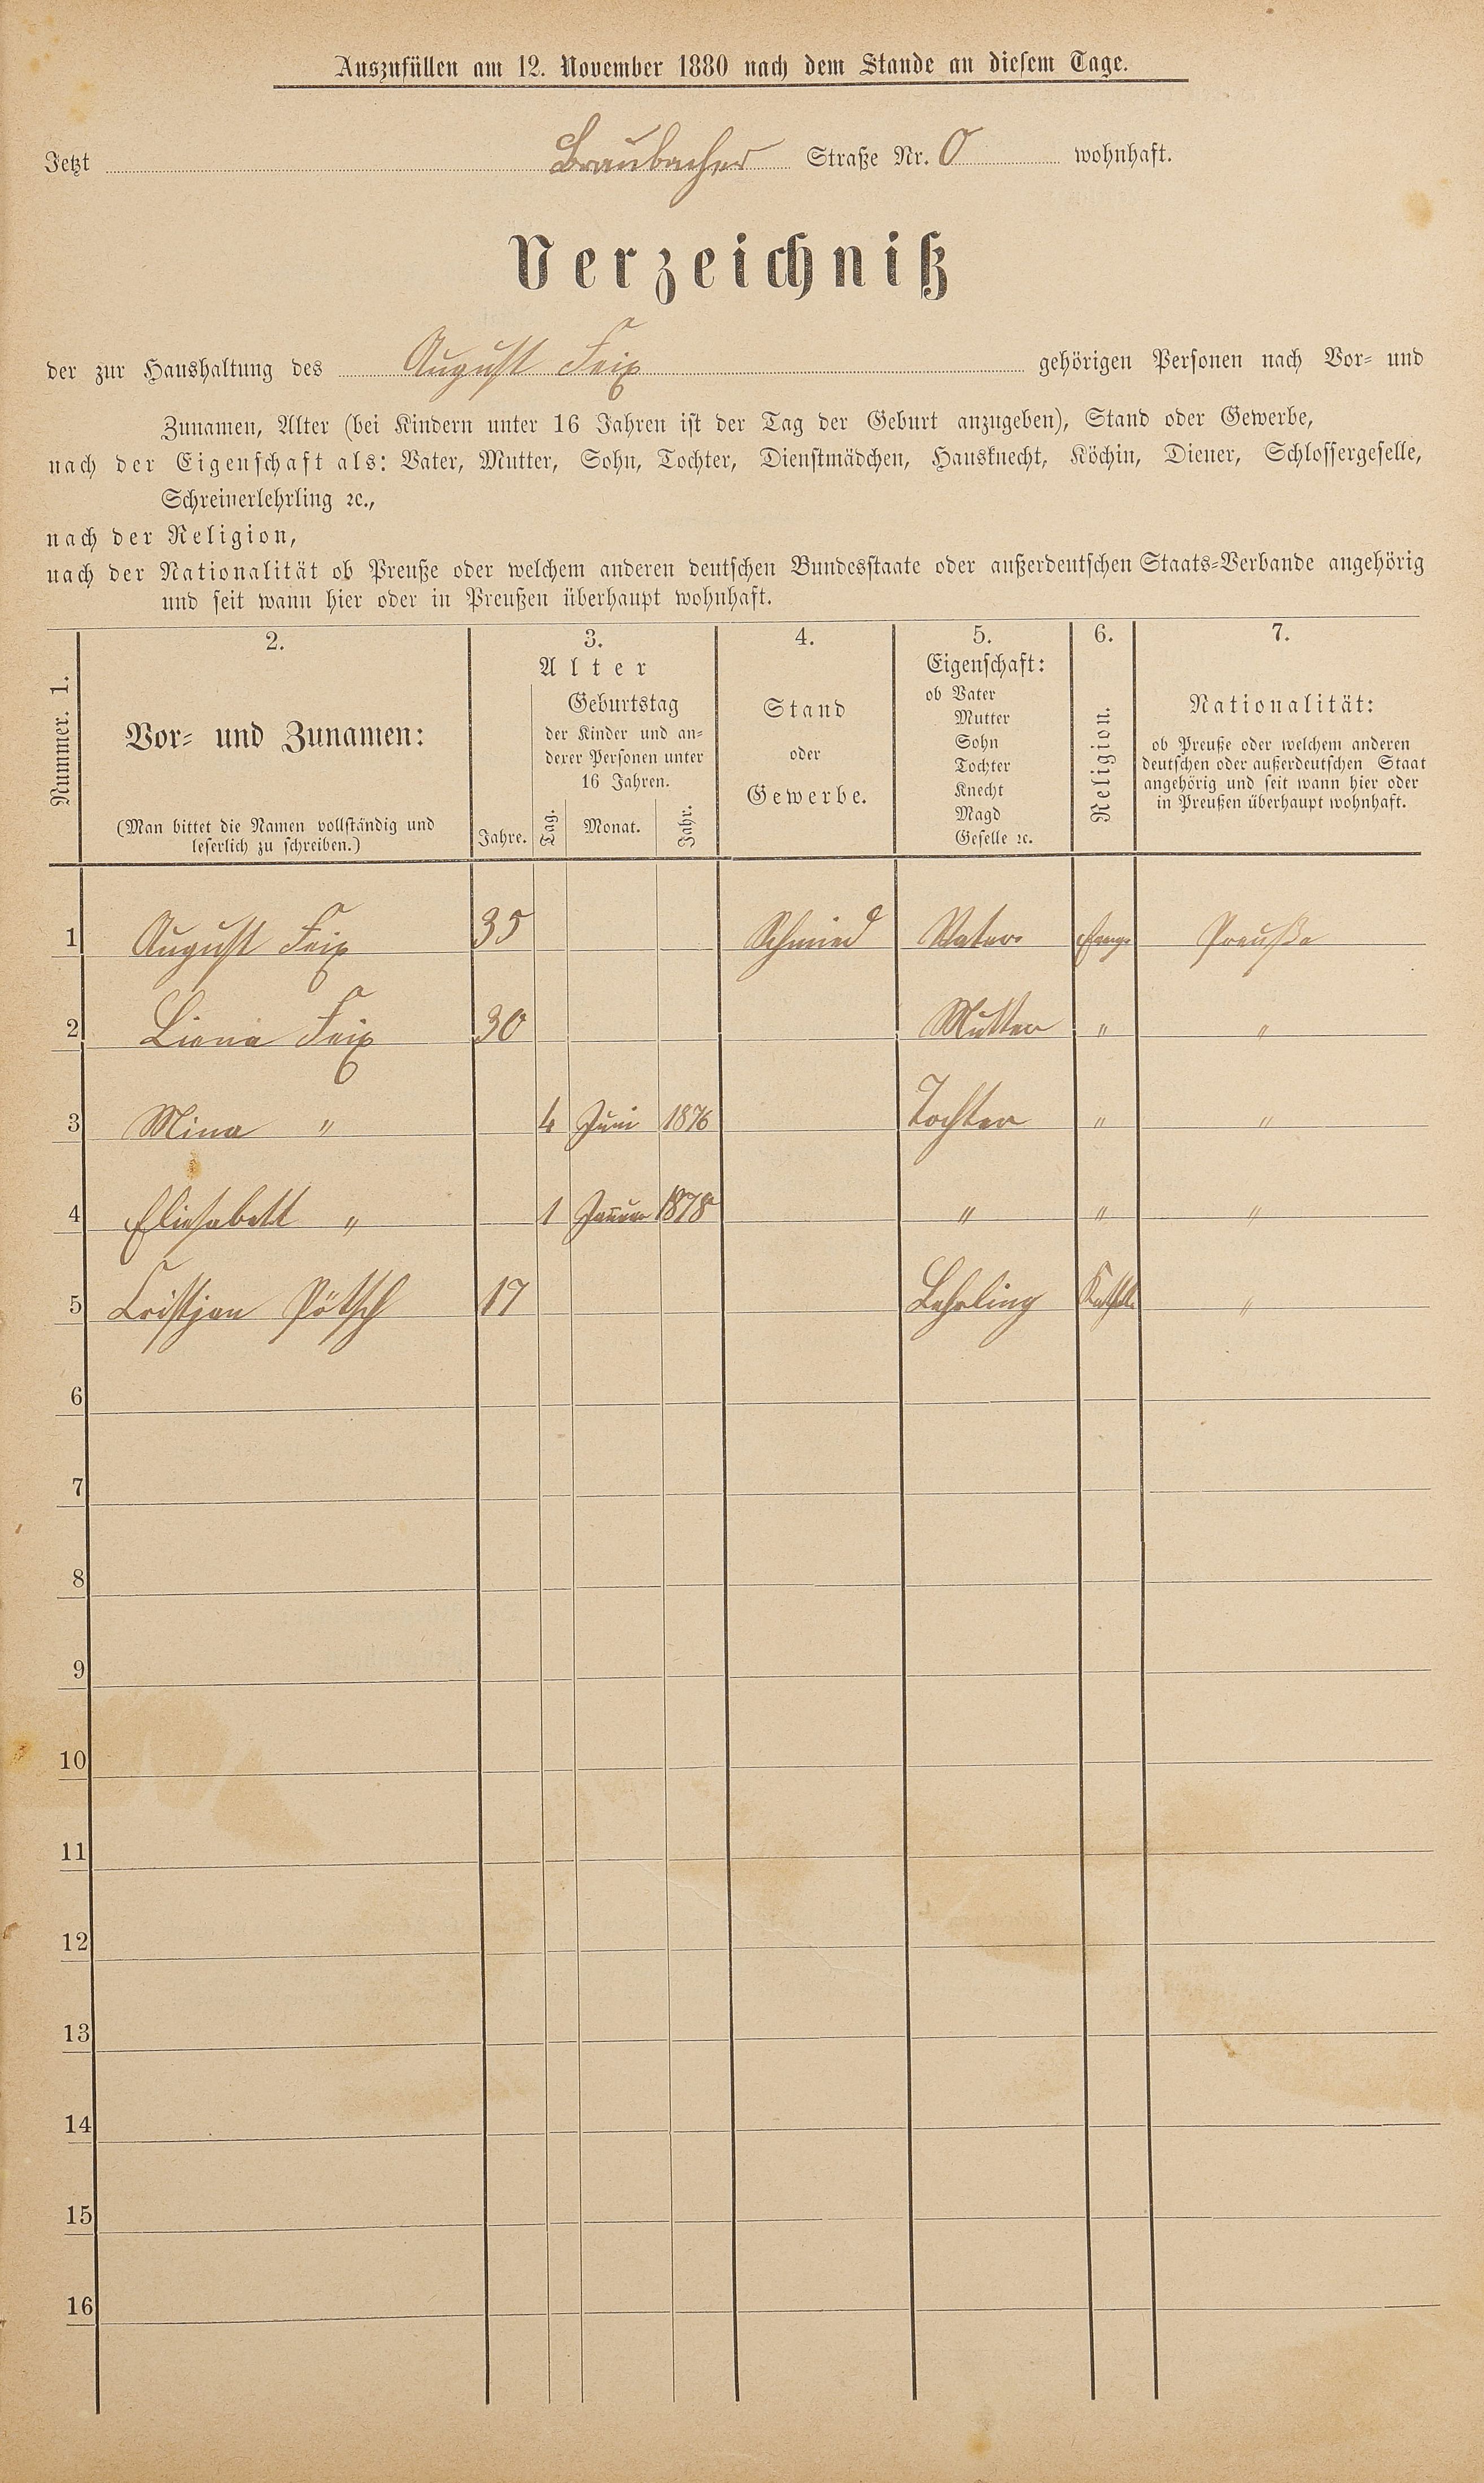 Auszufüllen am 12. November 1880 nach dem Stande an diesem Tage.
Jetzt Braubacher Straße Nr. 0 wohnhaft.
Verzeichniß
der zur Haushaltung des August Feix gehörigen Personen nach Vor- und
Zunamen, Alter (bei Kindern unter 16 Jahren ist der Tag der Geburt anzugeben), Stand oder Gewerbe,
nach der Eigenschaft als: Vater, Mutter, Sohn, Tochter, Dienstmädchen, Hausknecht, Köchin, Diener, Schlossergeselle,
Schreinerlehrling ꝛc.,
nach der Religion,
nach der Nationalität ob Preuße oder welchem anderen deutschen Bundesstaate oder außerdeutschen Staats-Verbande angehörig
und seit wann hier oder in Preußen überhaupt wohnhaft.
Nummer. 1.
2.
Vor- und Zunamen:
(Man bittet die Namen vollständig und
leserlich zu schreiben.)
3.
Alter
Jahre.
Geburtstag
der Kinder und an-
derer Personen unter
16 Jahren.
Tag. Monat. Jahr.
4.
Stand
oder
Gewerbe.
5.
Eigenschaft:
ob Vater
Mutter
Sohn
Tochter
Knecht
Magd
Geselle ꝛc.
6.
Religion.
7.
Nationalität:
ob Preuße oder welchem anderen
deutschen oder außerdeutschen Staat
angehörig und seit wann hier oder
in Preußen überhaupt wohnhaft.
1 August Feix 35 Schmied Vater Evang. Preuße
2 Feix 30 Mutter " "
3 Mina " 4 Juni 1876 Tochter " "
4 Eliesabett " 1 Januar 1878 " " "
5 Cristjan Pötsch 17 Lehrling Kathol. "
6
7
8
9
10
11
12
13
14
15
16